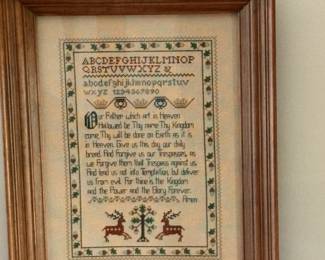 ABCDEFGHIJKLMNOP
QRSTUVWXYZ &
abcdefghijklmnopqrstuv
wxyz 1234567890
Our Father which art in Heaven
Hallowed be Thy name Thy Kingdom
come, Thy will be done on Earth as it is
in Heaven. Give us this day our daily
bread. And Forgive us our trespasses, as
we Forgive them that trespass against us.
And lead us not into Temptation, but deliver
us from evil. For thine is the Kingdom
and the Power and the Glory Forever.
Amen